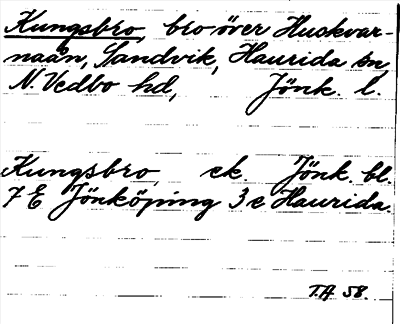 Kungsbro, bro över Huskvar-
naån, Sandvik, Haurida sn
N. Vedbo hd, Jönk. l.
Kungsbro ek. Jönk. bl.
7 E Jönköping 3 e Haurida.
T.H 58.